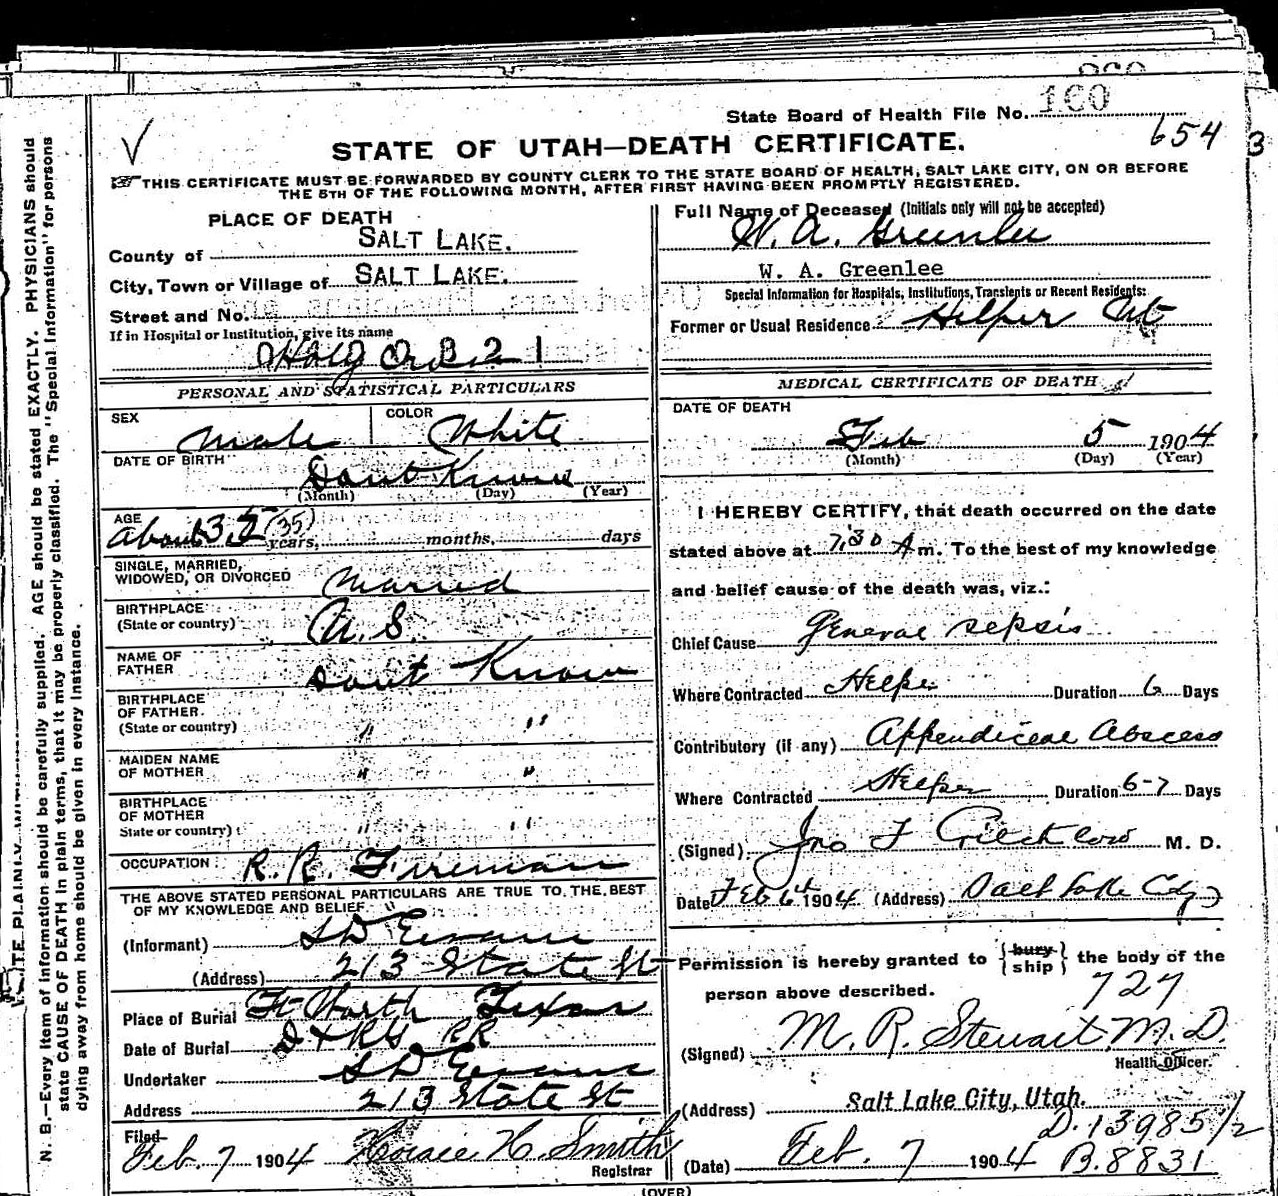 State Board of Health File No. 160
654
3
STATE OF UTAH—DEATH CERTIFICATE.
THIS CERTIFICATE MUST BE FORWARDED BY COUNTY CLERK TO THE STATE BOARD OF HEALTH, SALT LAKE CITY, ON OR BEFORE
THE 5TH OF THE FOLLOWING MONTH, AFTER FIRST HAVING BEEN PROMPTLY REGISTERED.
N. B.—Every item of information should be carefully supplied. AGE should be stated EXACTLY. PHYSICIANS should
state CAUSE OF DEATH in plain terms, that it may be properly classified. The "Special Information" for persons
dying away from home should be given in every instance.
PLACE OF DEATH
County of SALT LAKE.
City, Town or Village of SALT LAKE.
Street and No.
If in Hospital or Institution, give its name
Holy
PERSONAL AND STATISTICAL PARTICULARS
SEX Male
COLOR White
DATE OF BIRTH Dont Know
(Month) (Day) (Year)
AGE About 35 (35) years, months, days
SINGLE, MARRIED,
WIDOWED, OR DIVORCED Married
BIRTHPLACE
(State or country) U. S.
NAME OF
FATHER dont Know
BIRTHPLACE
OF FATHER
(State or country) " "
MAIDEN NAME
OF MOTHER " "
BIRTHPLACE
OF MOTHER
State or country) " "
OCCUPATION R. R. Fireman
THE ABOVE STATED PERSONAL PARTICULARS ARE TRUE TO THE BEST
OF MY KNOWLEDGE AND BELIEF
(Informant) S D Evans
(Address) 213 State St
Place of Burial Ft Worth Texas
Date of Burial D & RG RR
Undertaker S D Evans
Address 213 State St
Filed
Feb. 7 1904 Horace H. Smith
Registrar
Full Name of Deceased (Initials only will not be accepted)
W. A. Greenlee
W. A. Greenlee
Special Information for Hospitals, Institutions, Transients or Recent Residents:
Former or Usual Residence Helper Ut
MEDICAL CERTIFICATE OF DEATH
DATE OF DEATH
Feb 5 1904
(Month) (Day) (Year)
I HEREBY CERTIFY, that death occurred on the date
stated above at 7,30 A m. To the best of my knowledge
and belief cause of the death was, viz.:
Chief Cause General sepsis
Where Contracted Helper Duration 6 Days
Contributory (if any) Appendiceal Abscess
Where Contracted Helper Duration 6-7 Days
(Signed) Jno F Critchlow M. D.
Date Feb 6th 1904 (Address) Salt Lake City
Permission is hereby granted to {bury ship} the body of the
person above described. 727
(Signed) M. R. Stewart, M. D.
Health Officer.
(Address) Salt Lake City, Utah.
D. 13985 1/2
(Date) Feb. 7 1904 B. 8831
(OVER)